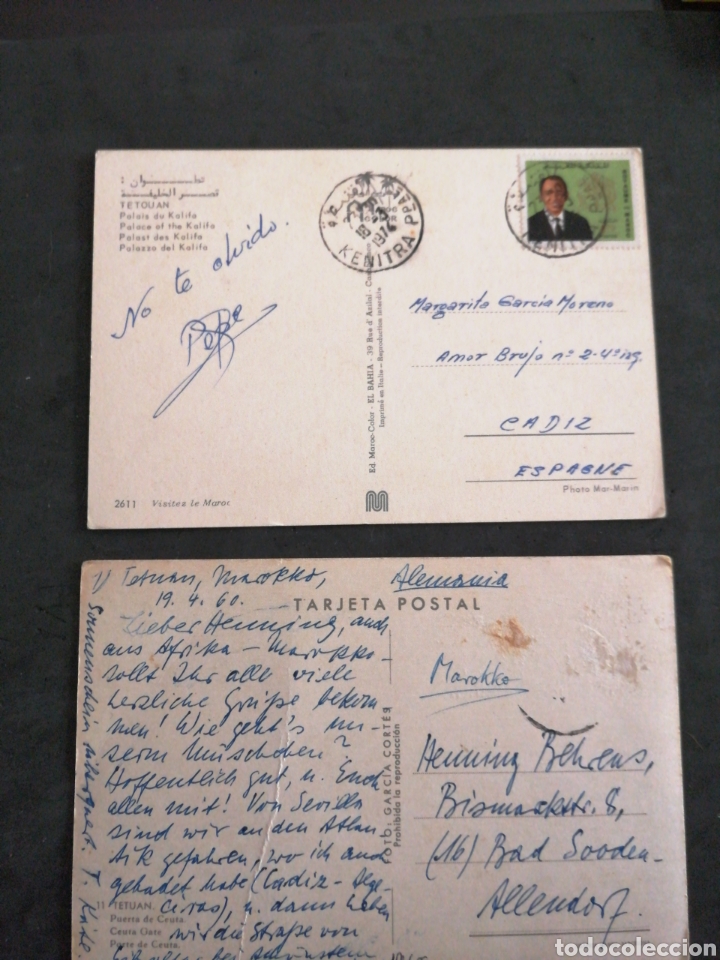 تطـــوان :
قصــر الخليفــة
TETOUAN
Palais du Kalifa
Palace of the Kalifa
Palast des Kalifa
Palazzo del Kalifa
No te olvido.
Pepe
2611 Visitez le Maroc
Ed. Maroc-Color - EL BAHIA - 39 Rue d'
Imprimé en Italie - Reproduction interdite
KENITRA PPAL
1974
KENITRA
Margarita García Moreno
Amor Brujo nº 2-4º izq.
CADIZ
ESPAGNE
Photo Mar-Marin
1) Tetuan, Marokko,
19.4.60.
Lieber Henning, auch
aus Afrika - Marokko -
sollt Ihr alle viele
herzliche Grüße bekom
men! Wie geht's un-
serm Muschchen?
Hoffentlich gut, u. Euch
allen mit! Von Sevilla
sind wir an den Atlan
tik gefahren, wo ich auch
gebadet habe (Cadiz - Alge-
ciras), u. dann haben
wir die Straße von
Sonnenschein T. Käte.
11 TETUAN.
Puerta de Ceuta.
Ceuta Gate
Porte de Ceuta.
TARJETA POSTAL
FOTO: GARCIA CORTÉS
Prohibida la reproducción
Alemania
Marokko
Henning Behrens,
Bismarckstr. 8,
(16) Bad Sooden-
Allendorf.
todocoleccion